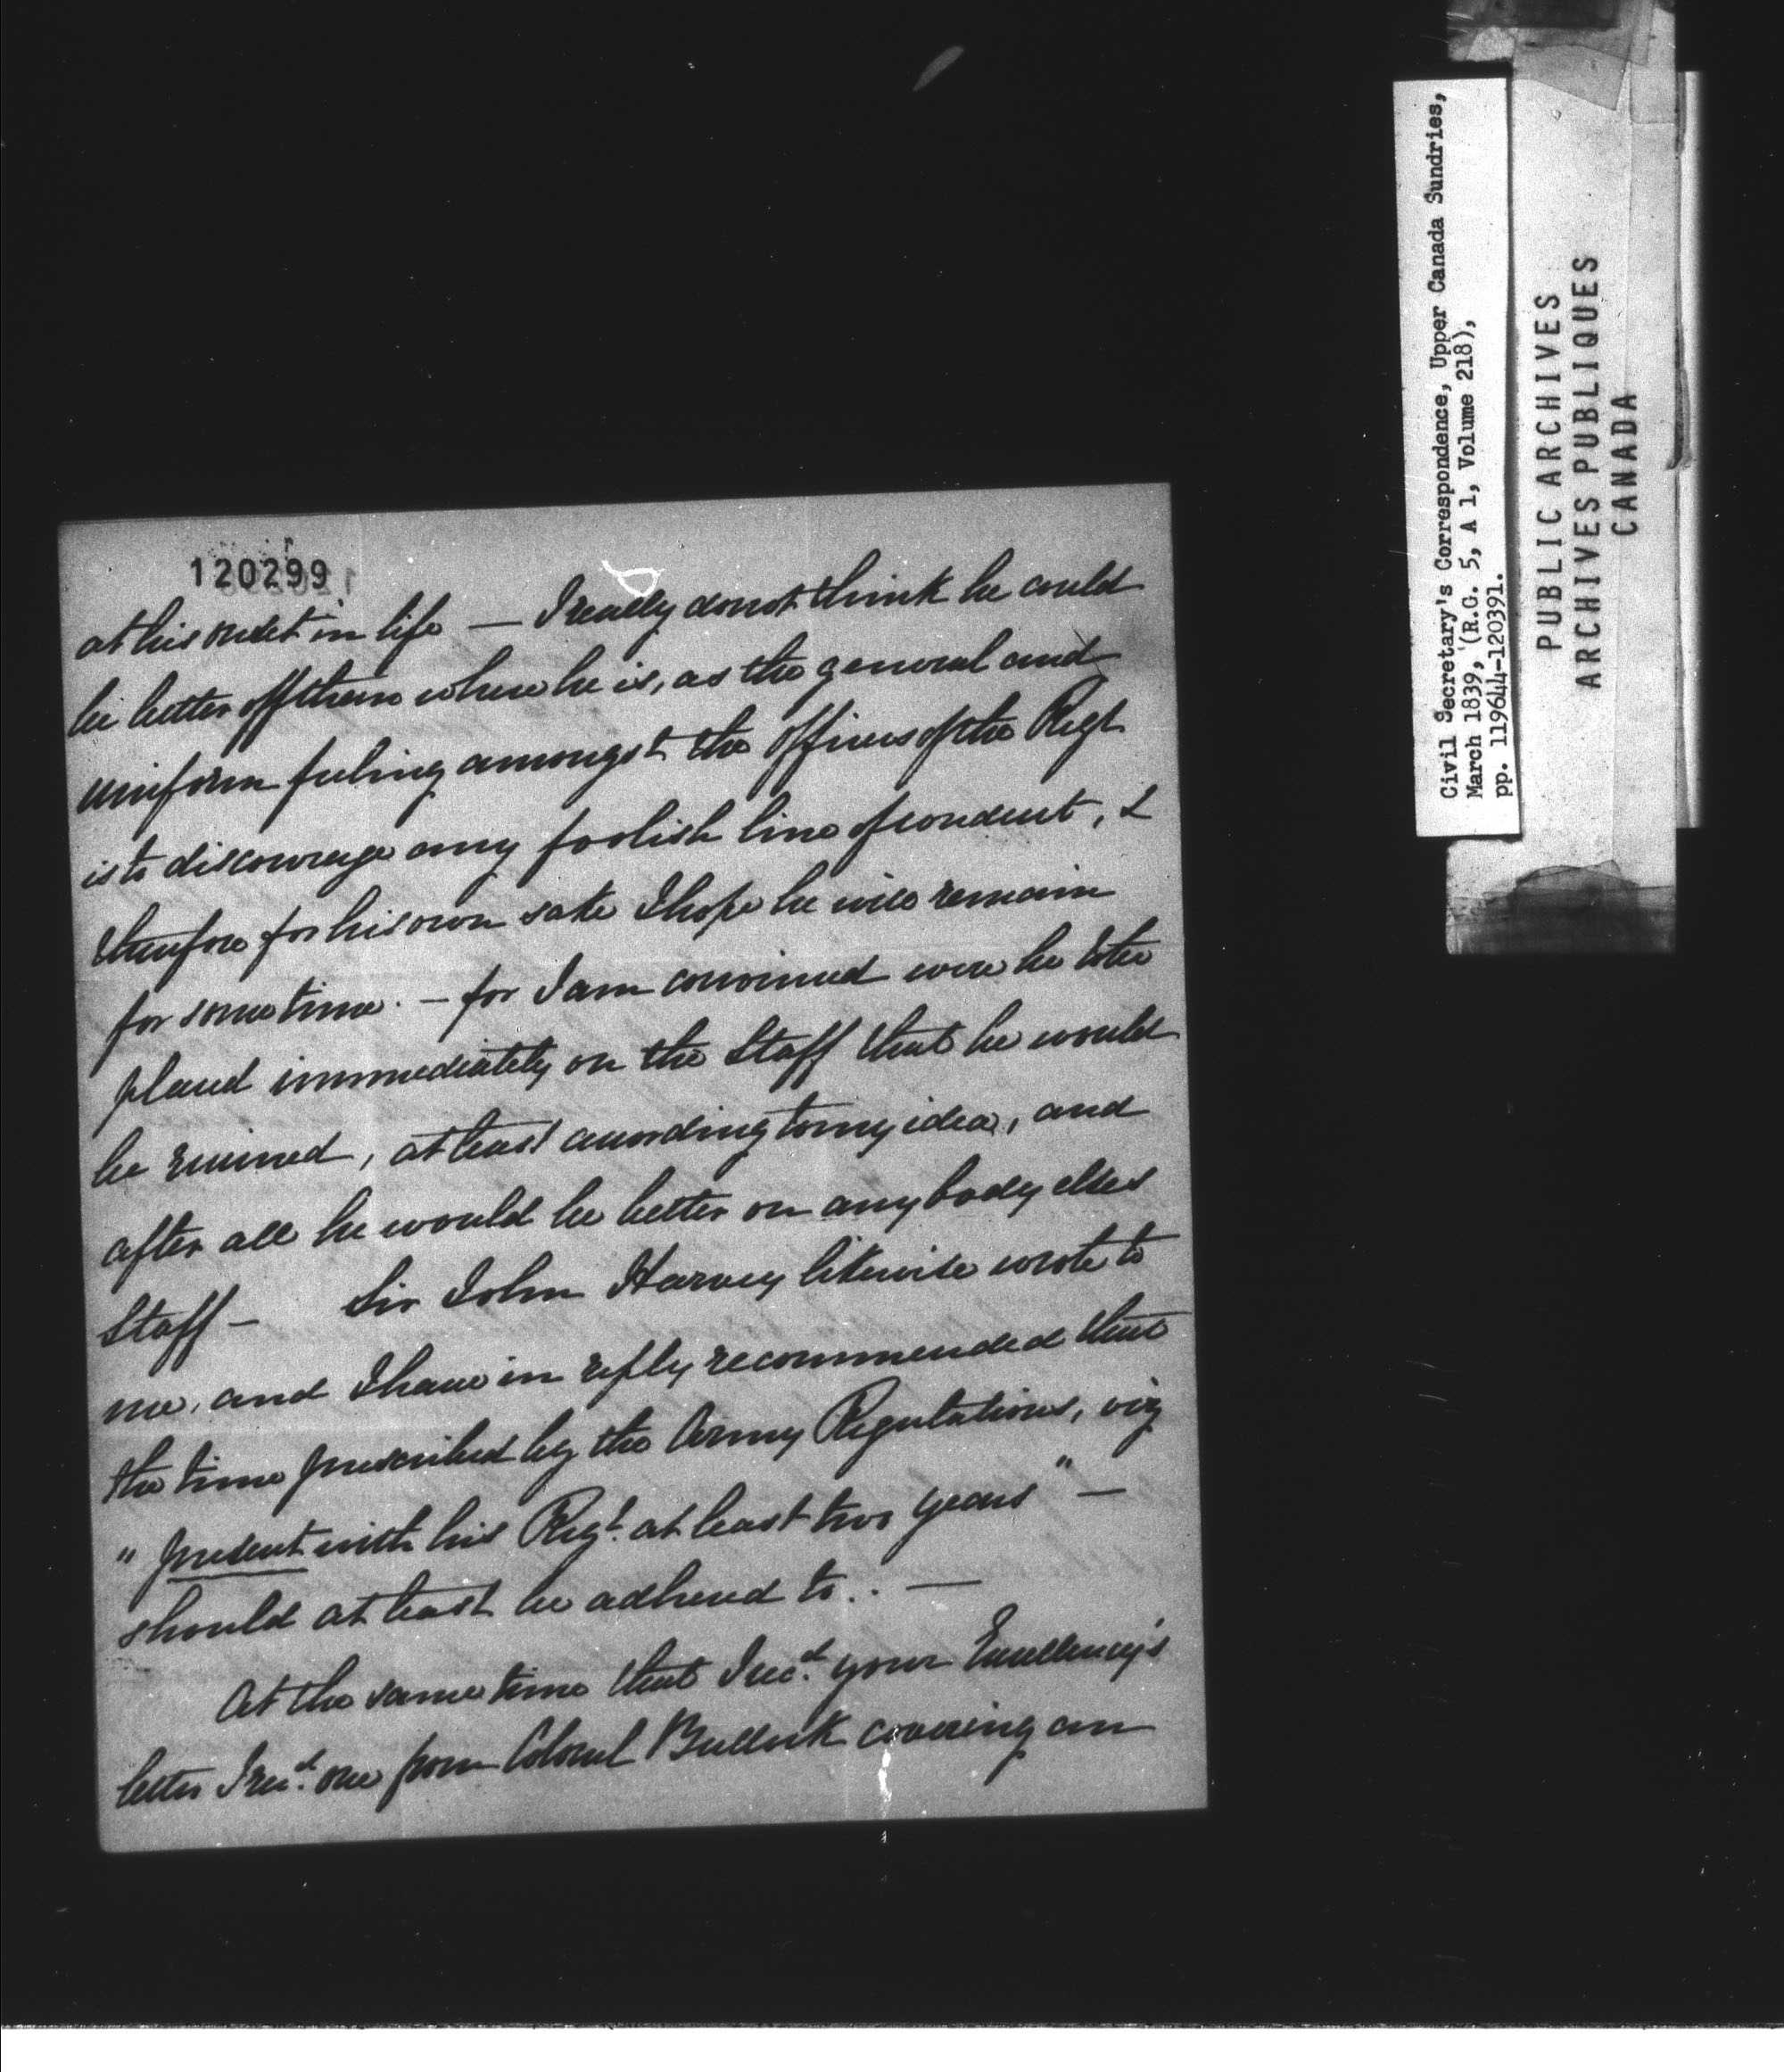 120299
at his outset in life — I really do not think he could
be better off than where he is, as the general and
uniform feeling amongst the officers of the Regt
is to discourage any foolish line of conduct, &
therefore for his own sake I hope he will remain
for some time. — for I am convinced were he to be
placed immediately on the Staff that he would
be ruined, at least according to my idea, and
after all he would be better on any body elses
Staff — Sir John Harvey likewise wrote to
me, and I have in reply recommended that
the time prescribed by the Army Regulations, viz
" present with his Regt. at least two years " —
should at least be adhered to. . —
At the same time that I recd. your Excellency's
letter I recd. one from Colonel Bullock covering an
Civil Secretary's Correspondence, Upper Canada Sundries,
March 1839, (R.G. 5, A 1, Volume 218),
pp. 119644-120391.
PUBLIC ARCHIVES
ARCHIVES PUBLIQUES
CANADA